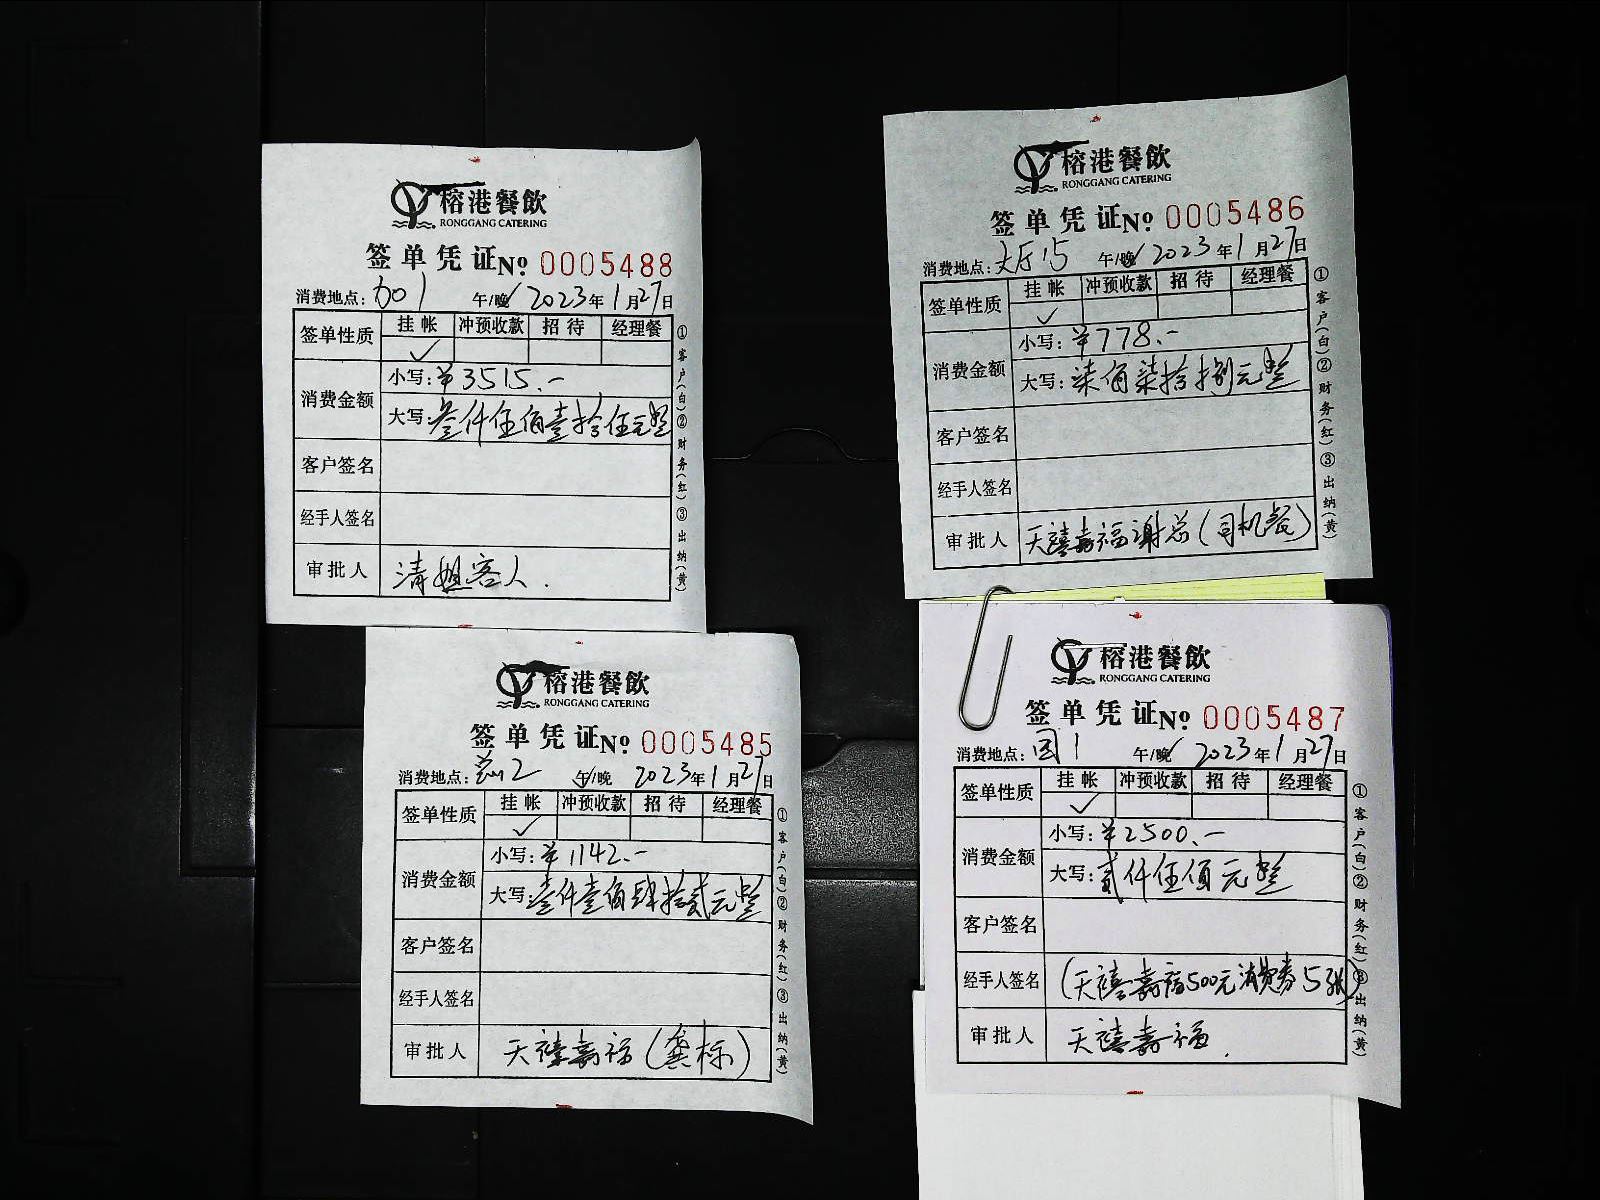 榕港餐飲
RONGGANG CATERING
签单凭证 No 0005488
消费地点: 加01 午/晚 2023年1月27日
签单性质 挂帐 冲预收款 招待 经理餐
✓
消费金额 小写: ¥3515.-
大写: 叁仟伍佰壹拾伍元整
客户签名
经手人签名
审批人 清姐客人.
①客户(白)②财务(红)③出纳(黄)
榕港餐飲
RONGGANG CATERING
签单凭证 No 0005486
消费地点: 大厅15 午/晚 2023年1月27日
签单性质 挂帐 冲预收款 招待 经理餐
✓
消费金额 小写: ¥778.-
大写: 柒佰柒拾捌元整
客户签名
经手人签名
审批人 天禧嘉福谢总(司机餐)
①客户(白)②财务(红)③出纳(黄)
榕港餐飲
RONGGANG CATERING
签单凭证 No 0005485
消费地点: 2 午/晚 2023年1月27日
签单性质 挂帐 冲预收款 招待 经理餐
✓
消费金额 小写: ¥1142.-
大写: 壹仟壹佰肆拾贰元整
客户签名
经手人签名
审批人 天禧嘉福(龚标)
①客户(白)②财务(红)③出纳(黄)
榕港餐飲
RONGGANG CATERING
签单凭证 No 0005487
消费地点: 国1 午/晚 2023年1月27日
签单性质 挂帐 冲预收款 招待 经理餐
✓
消费金额 小写: ¥2500.-
大写: 贰仟伍佰元整
客户签名
经手人签名 (天禧嘉福500元消费券5张)
审批人 天禧嘉福.
①客户(白)②财务(红)③出纳(黄)